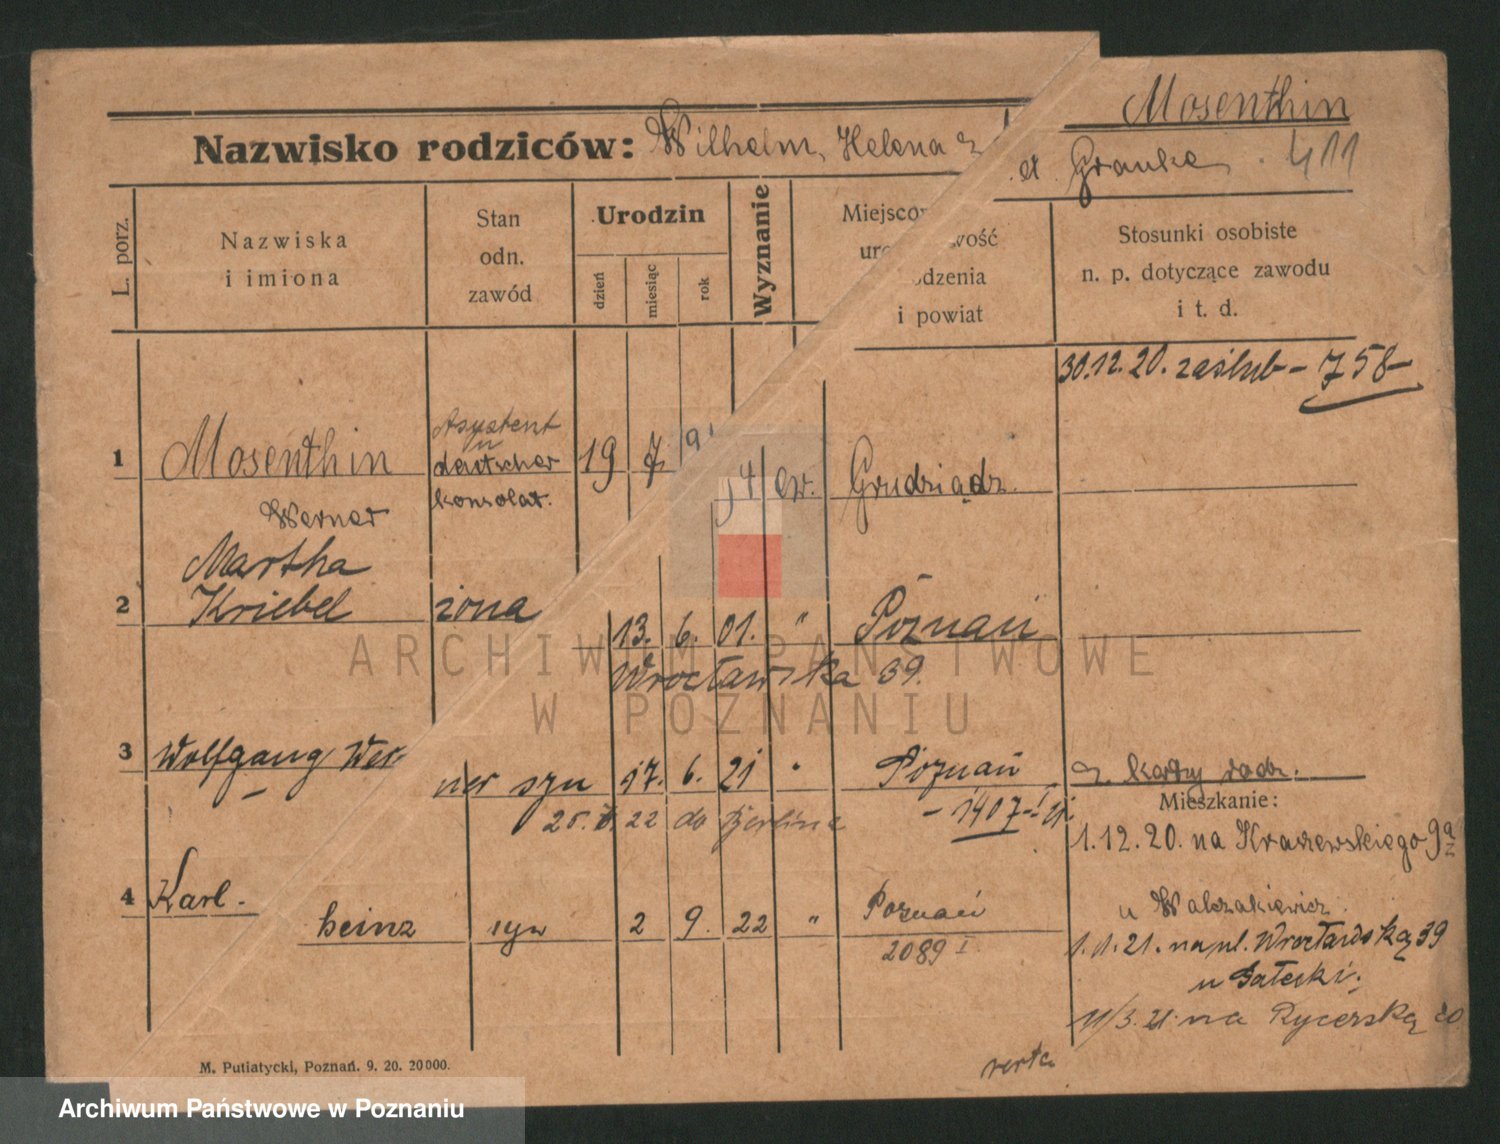 Mosenthin
Nazwisko rodziców: Wilhelm, Helena z d. Granke. 411
L. porz.
Nazwiska
i imiona
Stan
odn.
zawód
Urodzin
dzień
miesiąc
rok
Wyznanie
Miejscowość
urodzenia
i powiat
Stosunki osobiste
n. p. dotyczące zawodu
i t. d.
30.12.20. zaślub - 758-
1 Mosenthin
Werner
Asystent
deutscher
konsolat.
19 7 94 ew. Grudziądz.
2 Martha
Kriebel
żona 13. 6. 01. " Poznań
Wrocławska 39.
3 Wolfgang Werner syn 17. 6. 21 " Poznań
z karty rodz.
- 1407-I 21.
22 do Berlina
Mieszkanie:
1.12.20. na Kraszewskiego 9a
u Walczakiewicz.
4 Karl-
heinz syn 2 9. 22 " Poznań
2089 I
1.1.21. na pl. Wrocławską 39
u Gałecki.
11/3.21. na Rycerską 20
verte
M. Putiatycki, Poznań. 9. 20. 20000.
ARCHIWUM PAŃSTWOWE
W POZNANIU
Archiwum Państwowe w Poznaniu